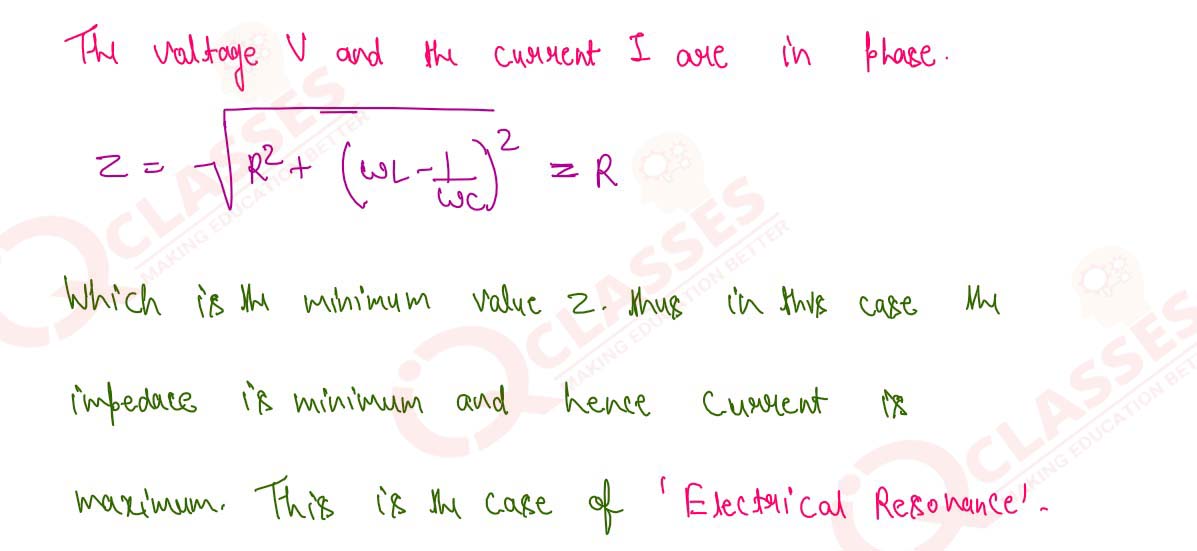 The voltage V and the current I are in phase.
Z = √(R² + (ωL - 1/ωC)²) = R
Which is the minimum value Z. thus in this case the
impedace is minimum and hence current is
maximum. This is the case of 'Electrical Resonance'.
CLASSES
MAKING EDUCATION BETTER
CLASSES
MAKING EDUCATION BETTER
CLASSES
MAKING EDUCATION BET